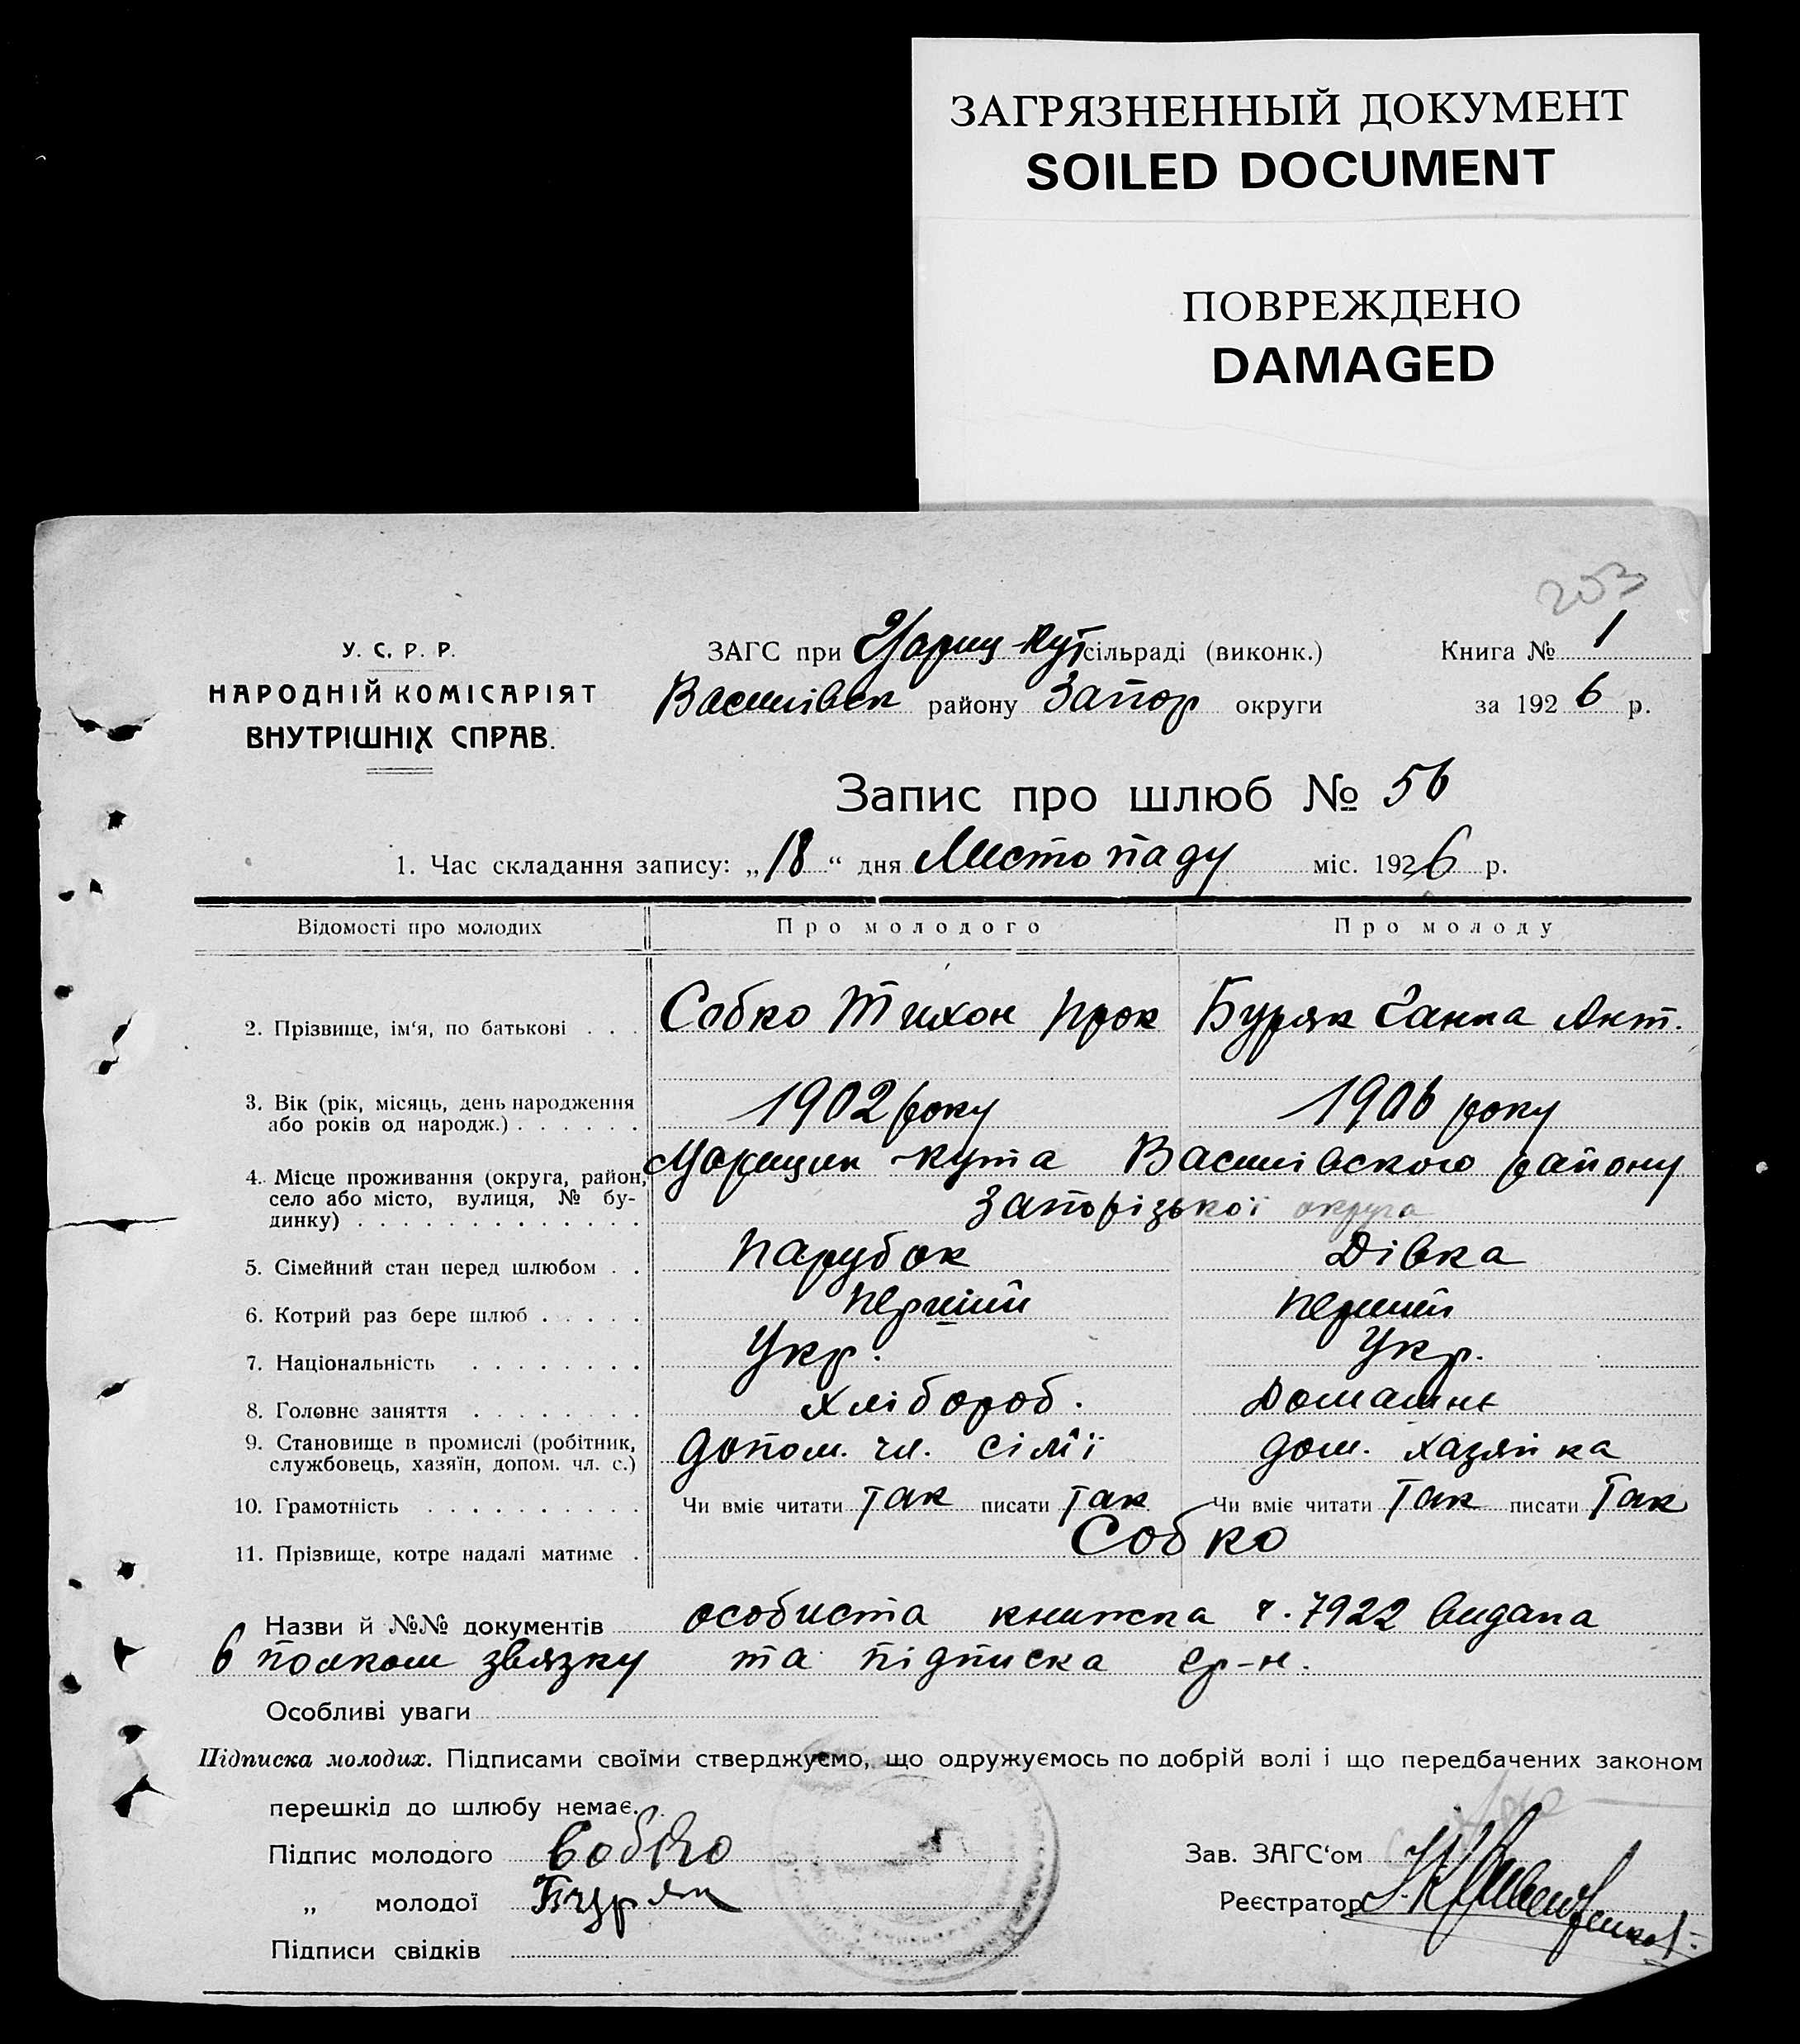 ЗАГРЯЗНЕННЫЙ ДОКУМЕНТ
SOILED DOCUMENT
ПОВРЕЖДЕНО
DAMAGED
203
У. С. Р. Р.
НАРОДНІЙ КОМІСАРІЯТ
ВНУТРІШНІХ СПРАВ.
ЗАГС при Цариц-Кут сільраді (виконк.)
Книга № 1
Василівск району Запор округи
за 1926 р.
Запис про шлюб № 56
1. Час складання запису: „18“ дня Листопаду міс. 1926 р.
Відомості про молодих Про молодого Про молоду
2. Прізвище, ім'я, по батькові . . . Собко Тихон Прок Буряк Ганна Ант.
3. Вік (рік, місяць, день народження
або років од народж.) . . . . . . 1902 року 1906 року
4. Місце проживання (округа, район, Царицин-кута Василівского району
село або місто, вулиця, № бу-
динку) . . . . . . . . . . . . . Запорізької округа
5. Сімейний стан перед шлюбом . . Парубок Дівка
6. Котрий раз бере шлюб . . . . . перший перший
7. Національність . . . . . . . . Укр. Укр.
8. Головне заняття . . . . . . . . хлібороб. Домашнє
9. Становище в промислі (робітник,
службовець, хазяїн, допом. чл. с.) допом. чл. сім'ї дом. хазяйка
10. Грамотність . . . . . . . . . . Чи вміє читати так писати так Чи вміє читати так писати так
11. Прізвище, котре надалі матиме . Собко
Назви й №№ документів особиста книжка ч. 7922 видана
6 полком звязку та підписка гр-н.
Особливі уваги
Підписка молодих. Підписами своїми стверджуємо, що одружуємось по добрій волі і що передбачених законом
перешкід до шлюбу немає.
Підпис молодого Собко
Зав. ЗАГС'ом
„ молодої Буряк
Реєстратор
Підписи свідків